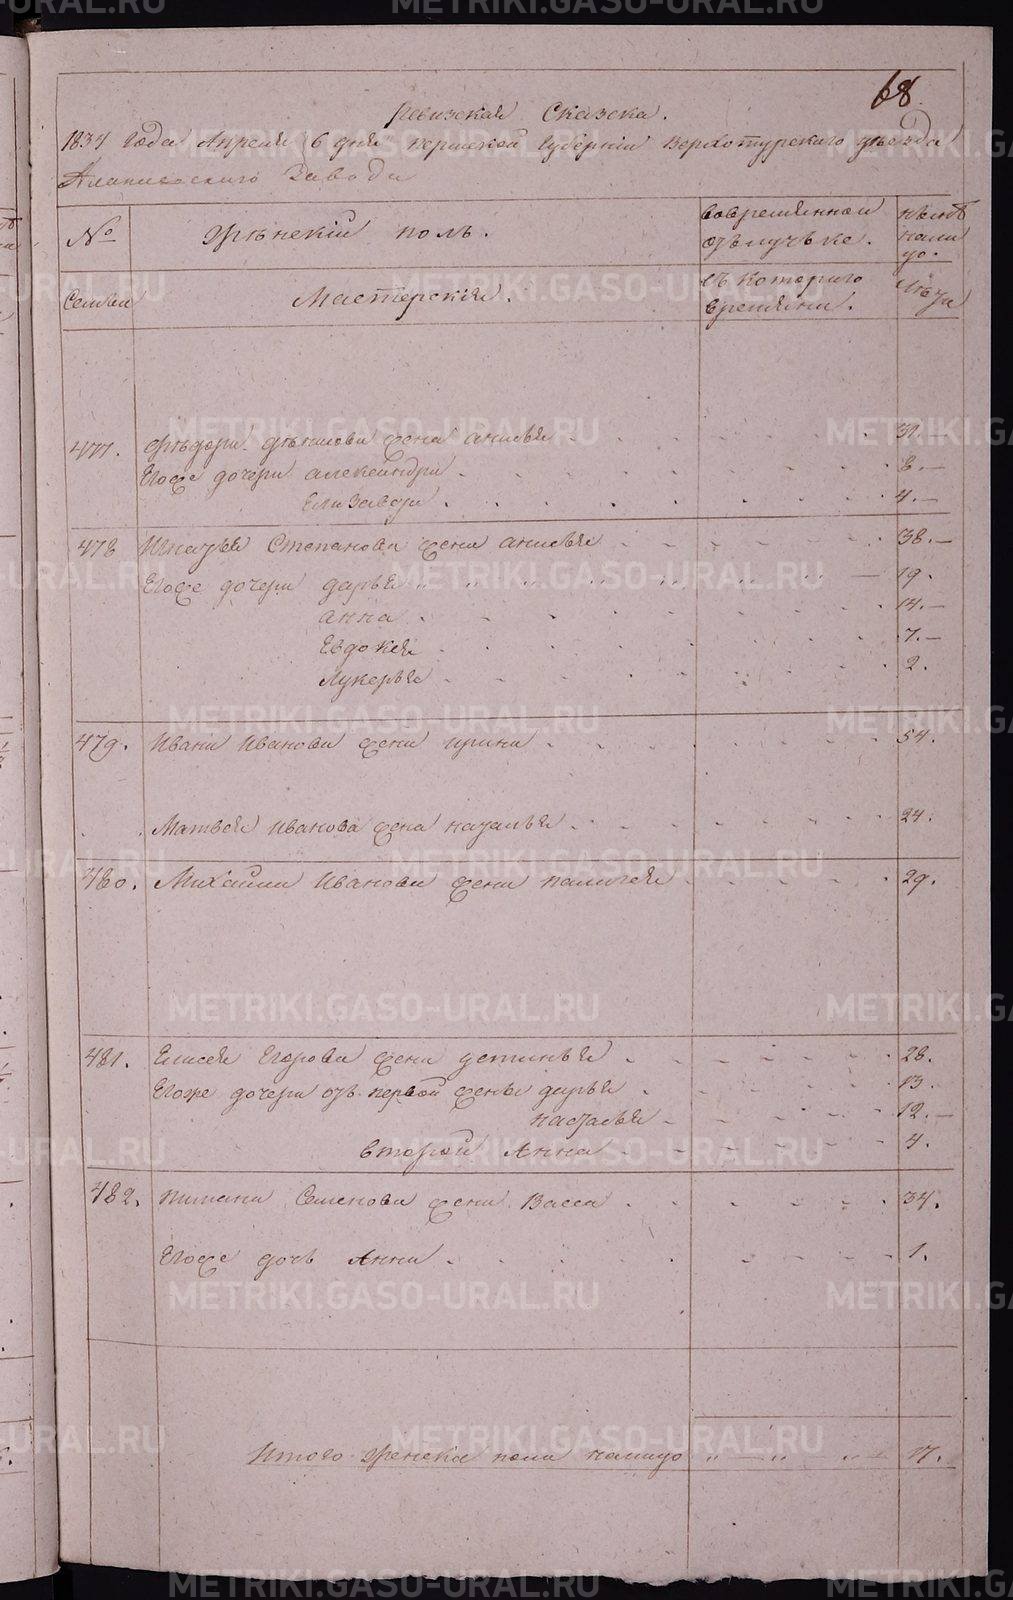 68
Ревизская Сказска.
1834 года Апреля 6 дня Пермской Губернии Верхотурского уѣзда
Алапаевского Завода
№ Женский полъ. вовремянной отълучьке. нынѣ нали цо.
Семьи Мастерския. съ которого времяни. Лѣта
477. жена анисья 31.
Егоже дочери александра 8.
Елизавета 4.
478 Игнатья Степанова жена анисья 38.
Егоже дочери дарья 19.
анна 14.
Евдокея 7.
Лукерья 2.
479. Ивана Иванова жена ирина 54.
Матвея Иванова жена наталья 24.
480. Михайла Иванова жена палагея 29.
481. Елисея Егорова жена устинья 28.
Егоже дочери отъ первой жены дарья 13.
настасья 12.
второй Анна 4.
482. Семенова жена Васса 34.
Егоже дочь Анна 1.
Итого женска пола налицо 17.
METRIKI.GASO-URAL.RU